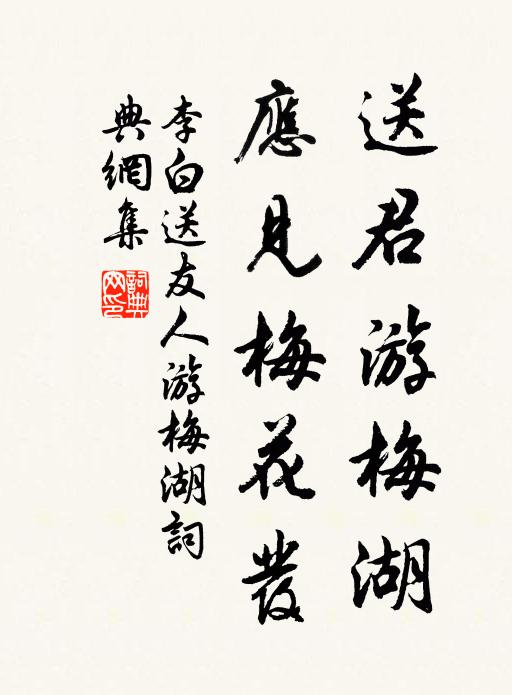 送君游梅湖
應見梅花發
李白送友人游梅湖詞
典網集
詞典网印